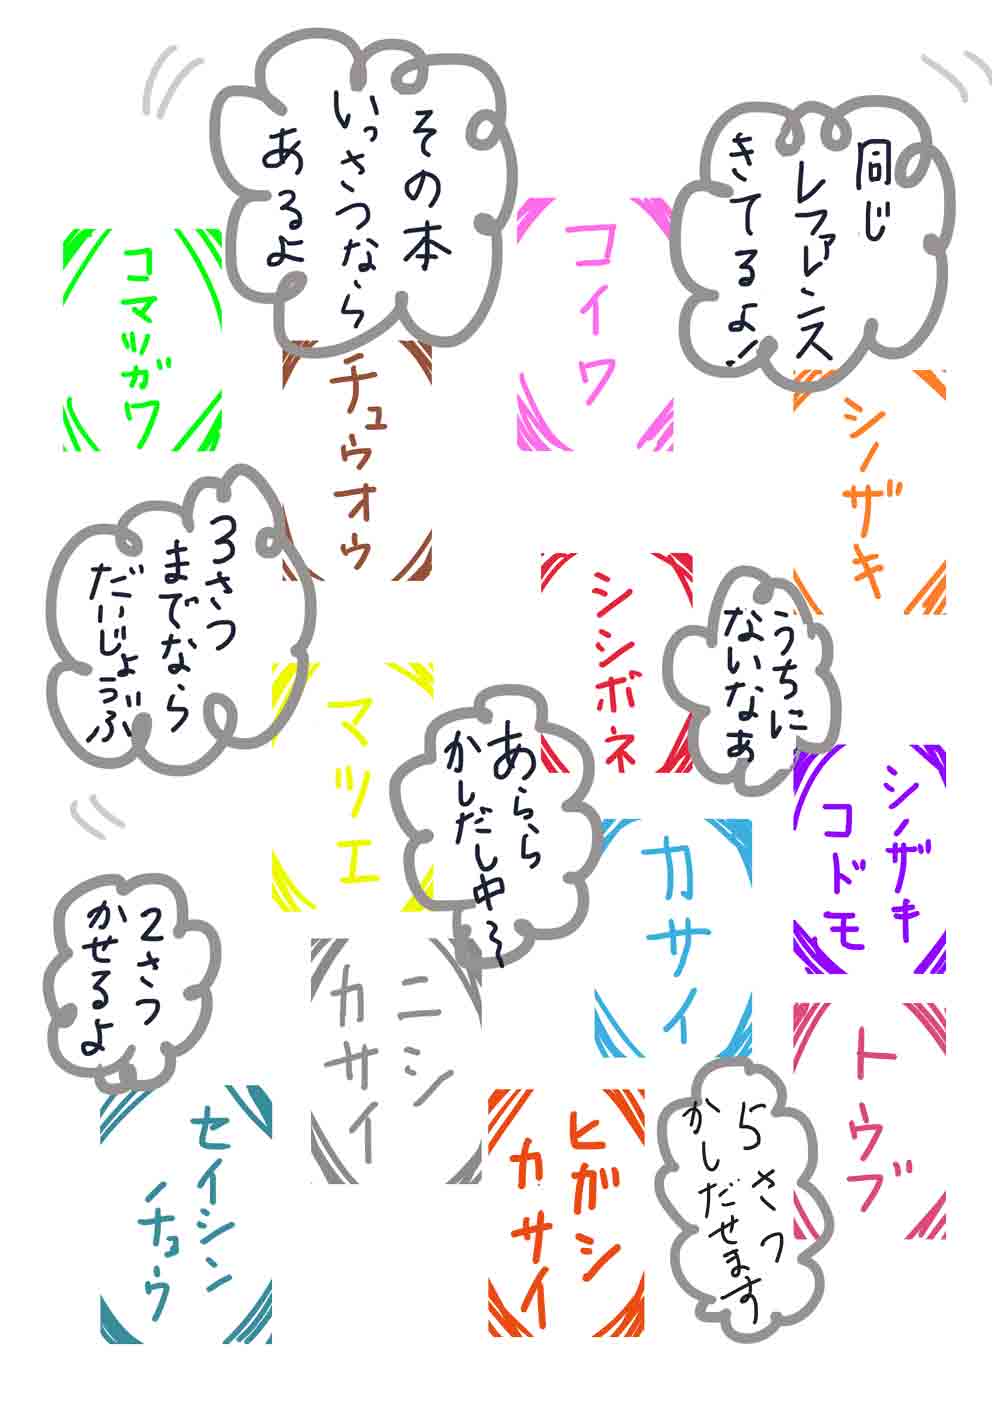 同じ
レファレンス
きてるよ!
その本
いっさつなら
あるよ
コイワ
コマツガワ
チュウオウ
シノザキ
3さつ
までなら
だいじょうぶ
シシボネ
うちに
ないなぁ
マツエ
あらら
かしだし中〜
シノザキ
コドモ
カサイ
2さつ
かせるよ
ニシ
カサイ
トウブ
セイシン
チョウ
ヒガシ
カサイ
5さつ
かしだせます